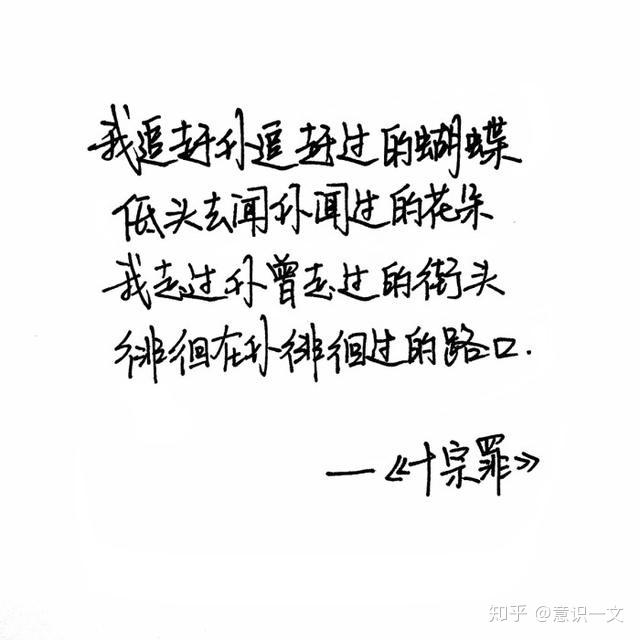 我追赶你追赶过的蝴蝶
低头去闻你闻过的花朵
我走过你曾走过的街头
徘徊在你徘徊过的路口.
——《十宗罪》
知乎 @意识一文